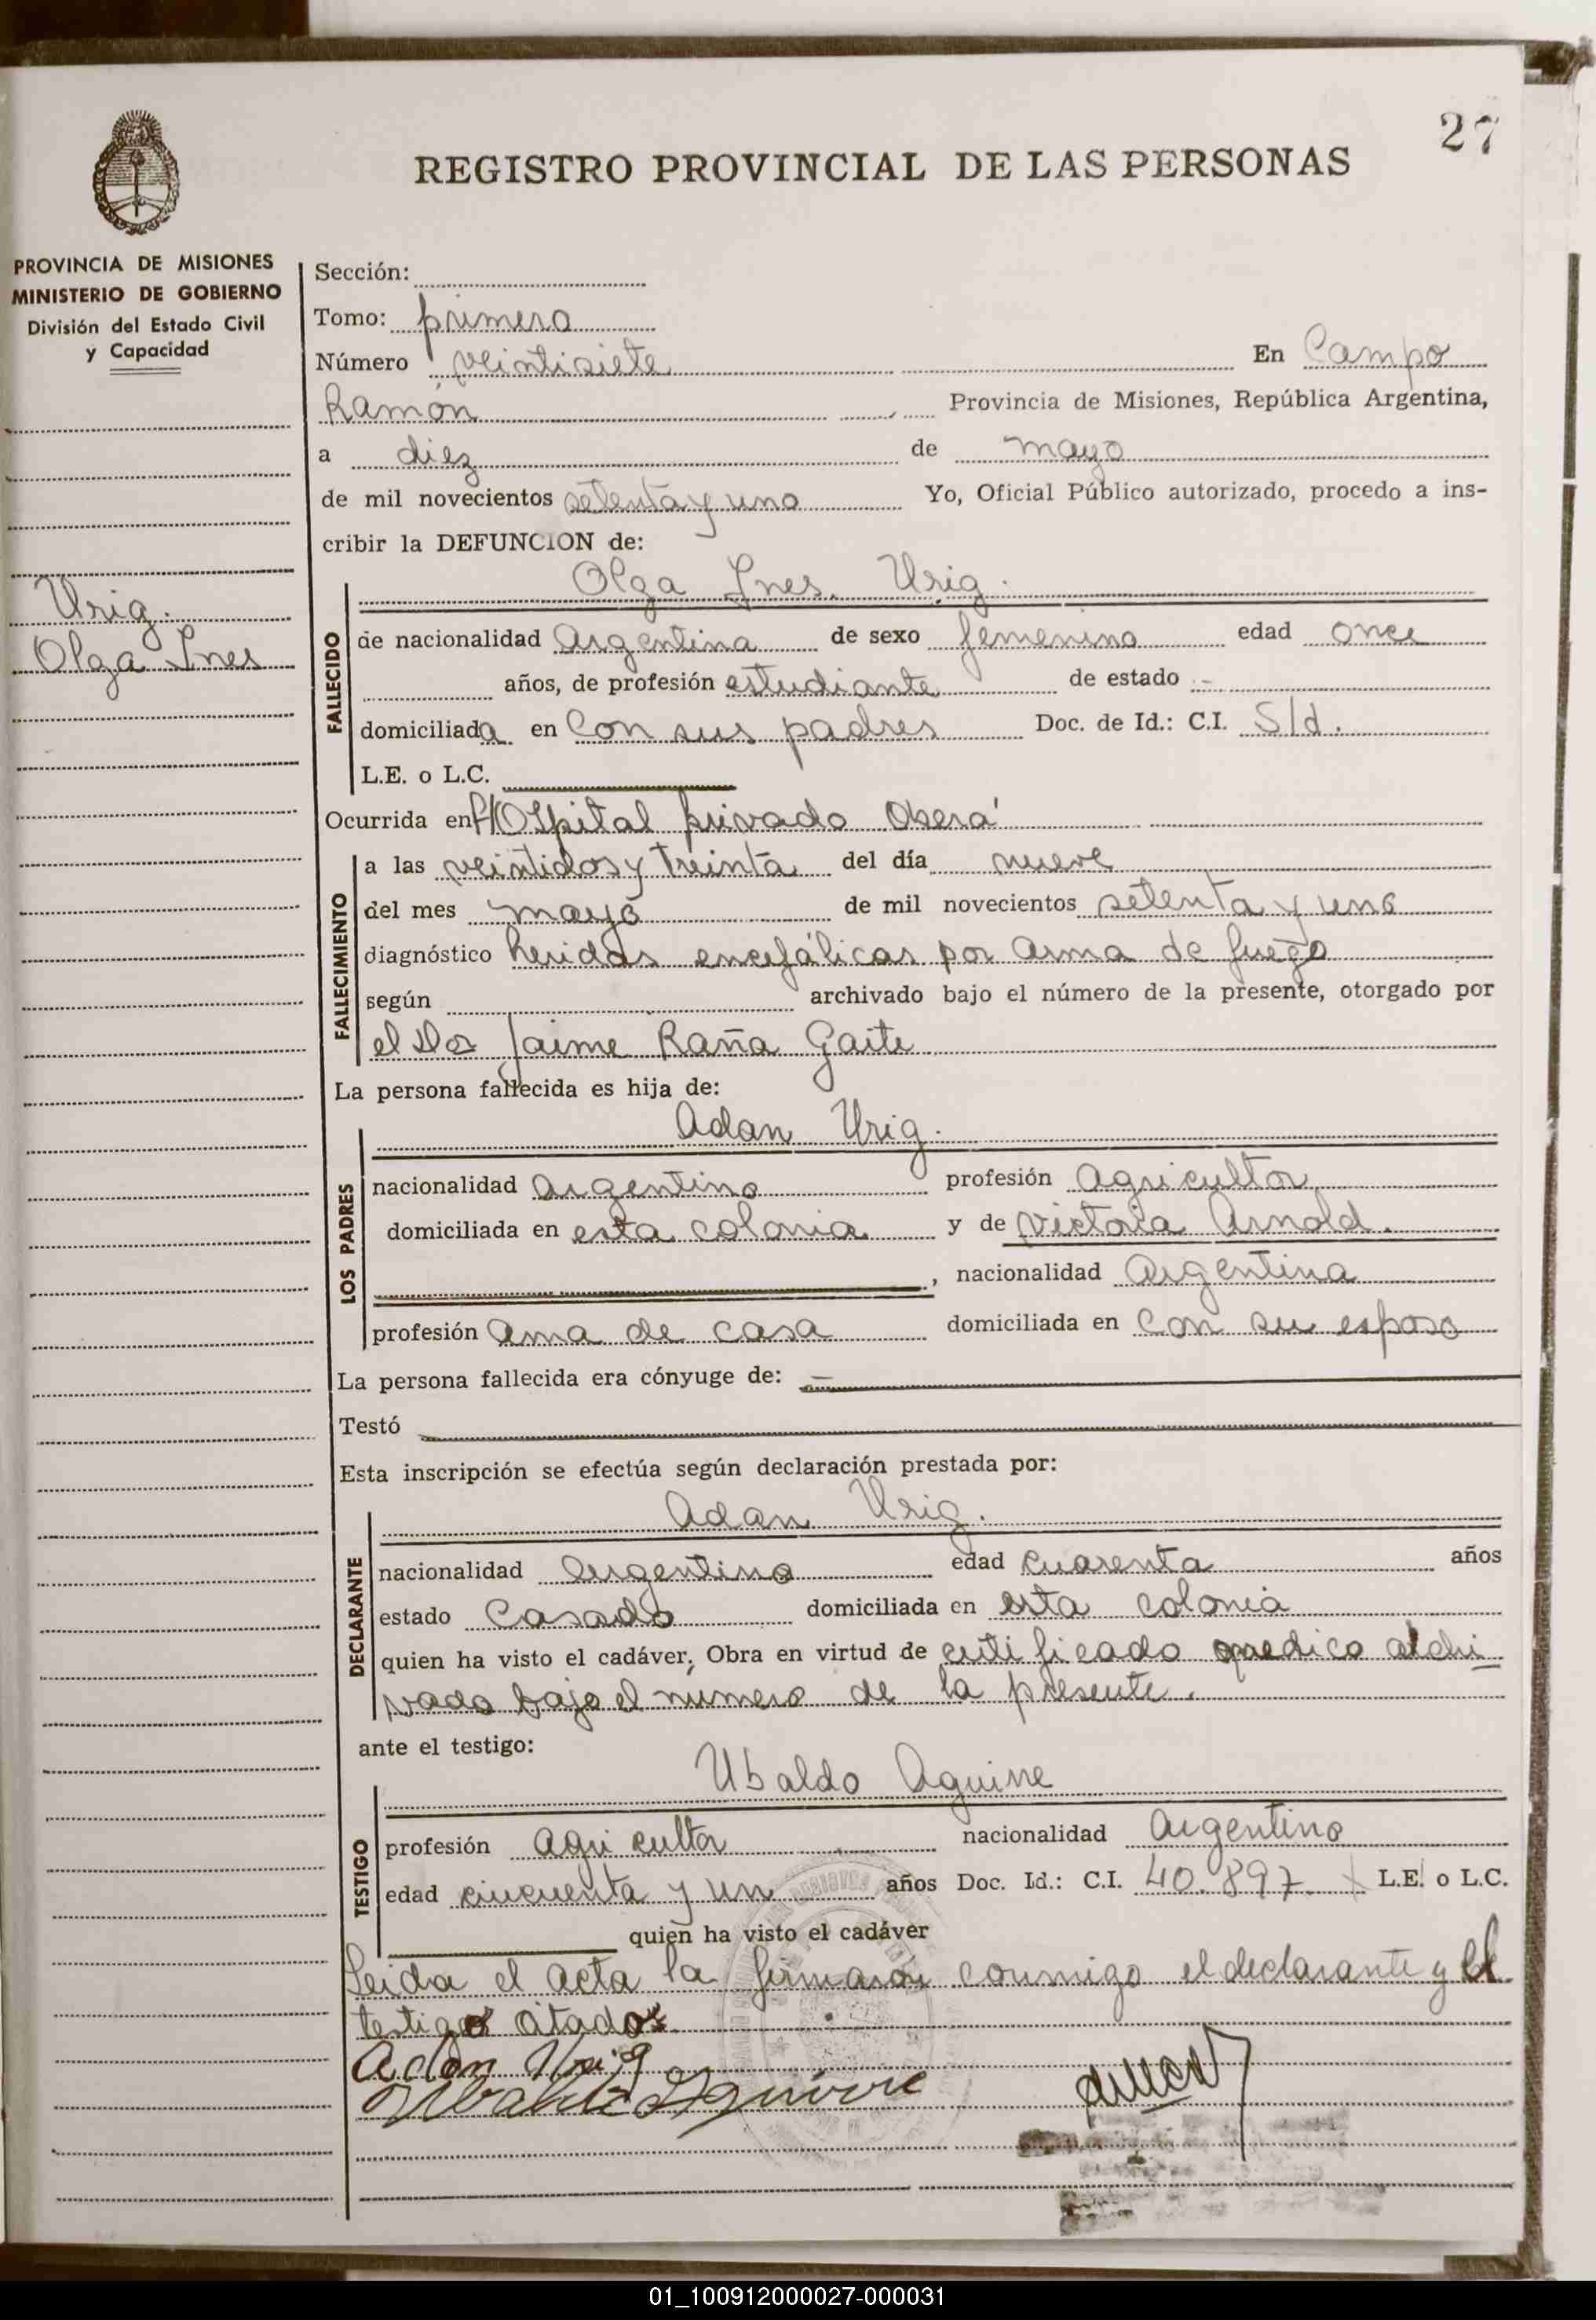 27
REGISTRO PROVINCIAL DE LAS PERSONAS
PROVINCIA DE MISIONES
MINISTERIO DE GOBIERNO
División del Estado Civil
y Capacidad
Urig.
Olga Ines
Sección:
Tomo: primero
Número veintisiete En Campo
Ramón Provincia de Misiones, República Argentina,
a diez de mayo
de mil novecientos setenta y uno Yo, Oficial Público autorizado, procedo a ins-
cribir la DEFUNCION de:
Olga Ines. Urig.
FALLECIDO
de nacionalidad Argentina de sexo femenino edad once
años, de profesión estudiante de estado -
domiciliada en Con sus padres Doc. de Id.: C.I. S/d.
L.E. o L.C.
Ocurrida en Hospital privado Oberá
FALLECIMIENTO
a las veintidos y treinta del día nueve
del mes mayo de mil novecientos setenta y uno
diagnóstico heridas encefálicas por arma de fuego
según archivado bajo el número de la presente, otorgado por
el Dor Jaime Raña Gaite
La persona fallecida es hija de:
Adan Urig.
LOS PADRES
nacionalidad argentino profesión agricultor
domiciliada en esta colonia y de Victoria Arnold.
, nacionalidad Argentina
profesión ama de casa domiciliada en Con su esposo
La persona fallecida era cónyuge de: -
Testó
Esta inscripción se efectúa según declaración prestada por:
Adan Urig.
DECLARANTE
nacionalidad Argentino edad cuarenta años
estado Casado domiciliada en esta colonia
quien ha visto el cadáver. Obra en virtud de certificado medico archi
vado bajo el numero de la presente.
ante el testigo:
Ubaldo Aguirre
TESTIGO
profesión agricultor nacionalidad Argentino
edad cincuenta y un años Doc. Id.: C.I. 40.897 L.E. o L.C.
quien ha visto el cadáver
Leida el acta la firmaron conmigo el declarante y el
testigo citado
Adan Urig
Ubaldo Aguirre
01_100912000027-000031